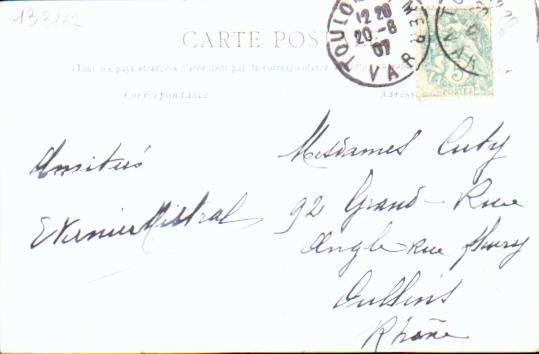 133/62
CARTE POSTALE
(Tous les pays étrangers n'acceptent pas la correspondance
Correspondance
Adresse
TOULON MER
12 20
20-8
07
VAR
POSTES
Amitiés
E Vernier Mistral
Mesdames Cuty
92 Grand-Rue
Angle rue fleury
Oullins
Rhône